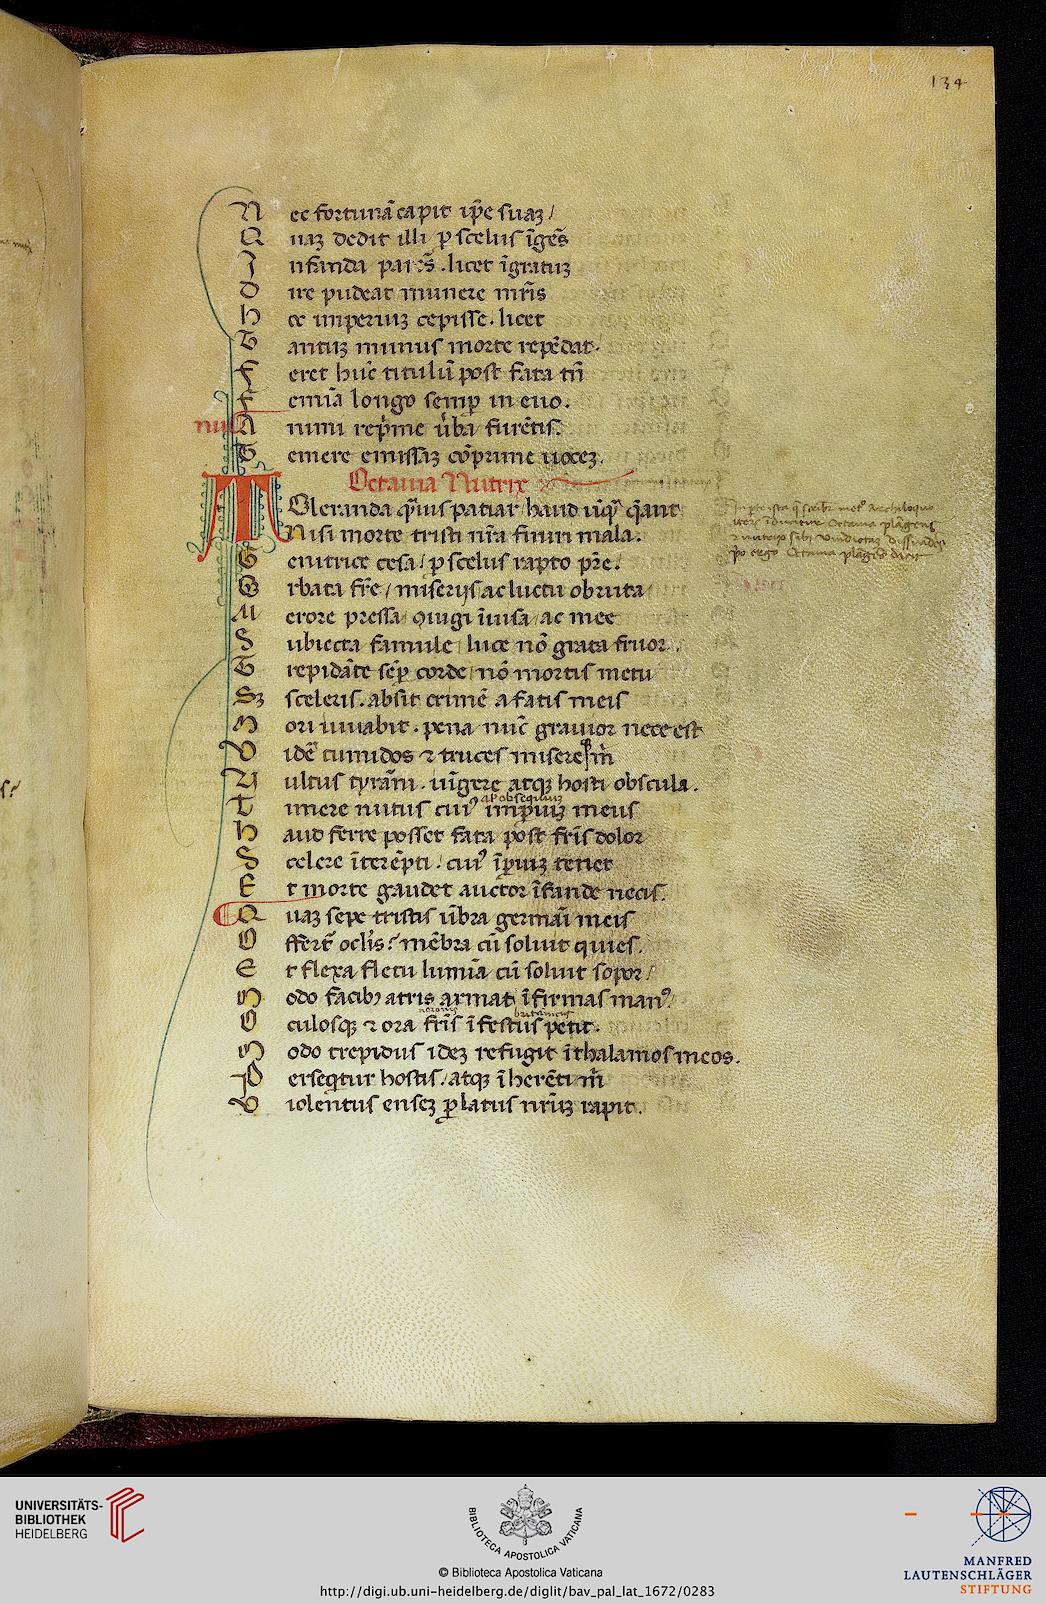 134
N ec fortunā capit ip̄e suaʒ /
Q uaʒ dedit illi p̱ scelus īgēs
I nfanda parēs . licet īgratuʒ
D ire pudeat munere mr̄is
H oc imperiuʒ cepisse . licet
T antuʒ munus morte repēdat .
F eret hūc titulū post fata tn̄
F emīa longo semꝑ in euo .
nut̄
A nimi rep̄me ūba furētis .
T emere emissaʒ cōprime uoceʒ .
Octauia Nutrix
T Oleranda q̄uis patiar / haud ūq̄ q̄ant
Nisi morte tristi nr̄a finiri mala .
G enitrice cesa / p̱ scelus rapto pr̄e .
O rbata fr̄e / miserijs ac luctu obruta
M erore pressa / ꝯiugi īuisa / ac mee
S ubiecta famule / luce nō grata fruor .
T repidāte sēꝑ corde / nō mortis metu
Sʒ sceleris . absit crimē a fatis meis
M ori iuuabit . pena nūc grauior nece est
V idē tumidos ⁊ truces misere m̄
V ultus tyrāni . iūgere atqʒ hosti obscula .
T imere nutus cuiꝰ impiuʒ meus
al' obsequiuʒ
H aud ferre posset fata post fr̄is dolor
S celere īterēpti . cuiꝰ īꝑiuʒ tenet
E t morte gaudet auctor īfande necis .
Q uaʒ sepe tristis ūbra germāi meis
O ffērt ocl̄is / mēbra cū soluit quies .
E t flexa fletu lumīa cū soluit sopor /
M odo facibꝫ atris armat īfirmas manꝰ .
O culosqʒ ⁊ ora fr̄is īfestus petit .
neronis britanicus
M odo trepidus ideʒ refugit ī thalamos meos .
P erseq̄tur hostis / atqʒ īherēti m̄
V iolentus enseʒ p̱ latus nr̄uʒ rapit .
UNIVERSITÄTS-
BIBLIOTHEK
HEIDELBERG
BIBLIOTECA APOSTOLICA VATICANA
© Biblioteca Apostolica Vaticana
http://digi.ub.uni-heidelberg.de/diglit/bav_pal_lat_1672/0283
MANFRED
LAUTENSCHLÄGER
STIFTUNG